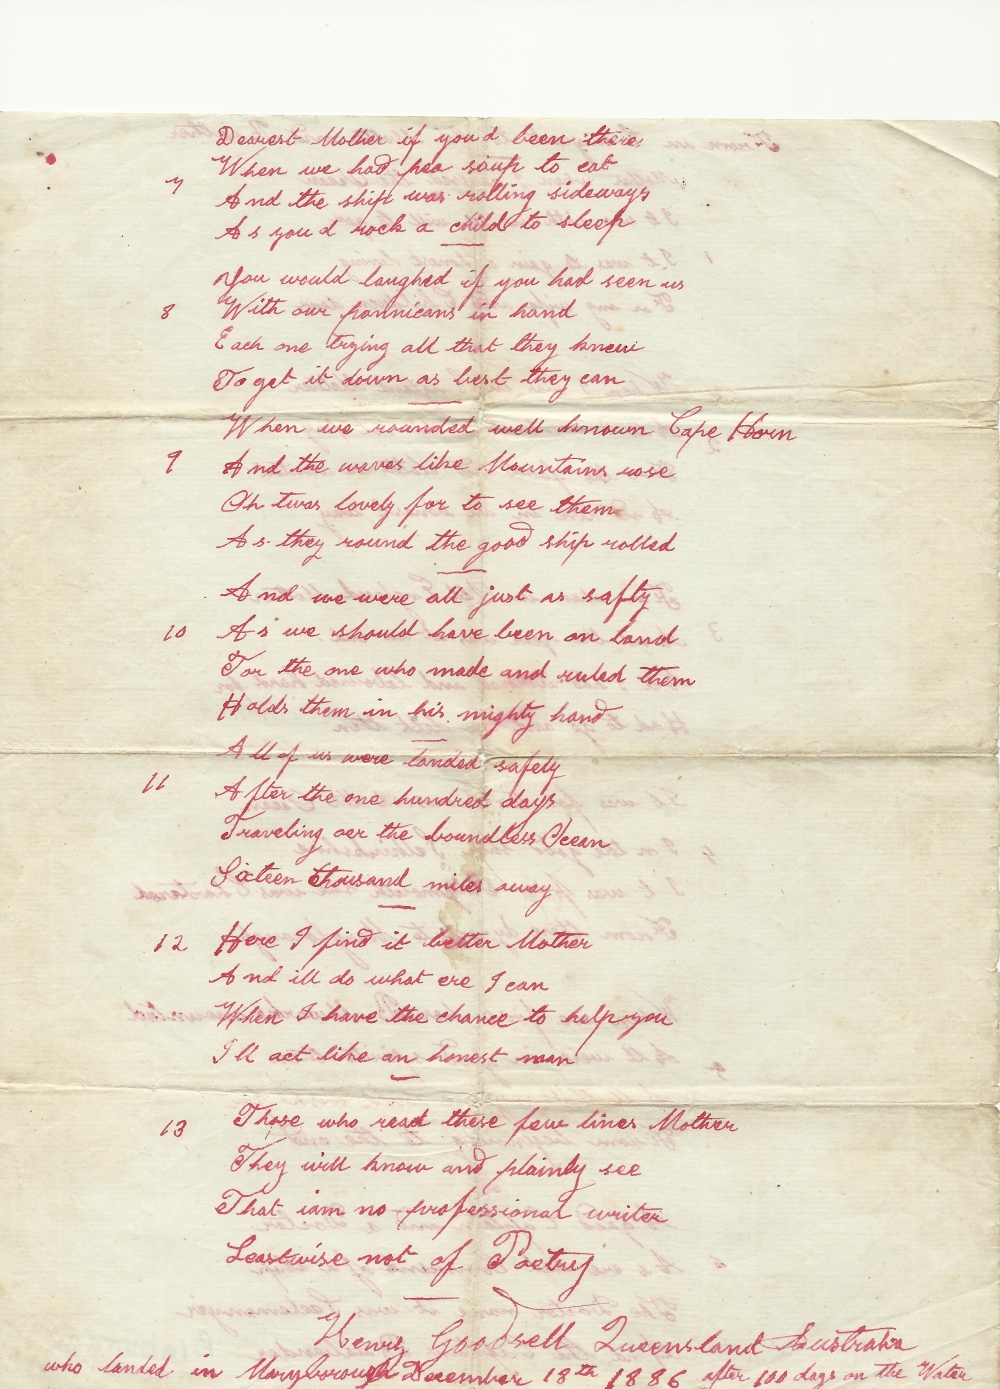 Dearest Mother if you d been there
When we had pea soup to eat
7
And the ship was rolling sideways
As you d rock a child to sleep
You would laughed if you had seen us
8 With our pannicans in hand
Each one trying all that they knew
To get it down as best they can
When we rounded well known Cape Horn
9 And the waves like Mountains rose
Oh twas lovely for to see them
As they round the good ship rolled
And we were all just as safty
10 As we should have been on land
For the one who made and ruled them
Holds them in his mighty hand
All of us were landed safely
11 After the one hundred days
Traveling oer the boundless Ocean
Sixteen thousand miles away
12 Here I find it better Mother
And ill do what ere I can
When I have the chance to help you
I ll act like an honest man
13 Those who read these few lines Mother
They will know and plainly see
That iam no professional writer
Leastwise not of Poetry
Henry Goodsell Queensland Australia
who landed in Maryborough December 18th 1886 after 100 days on the Water